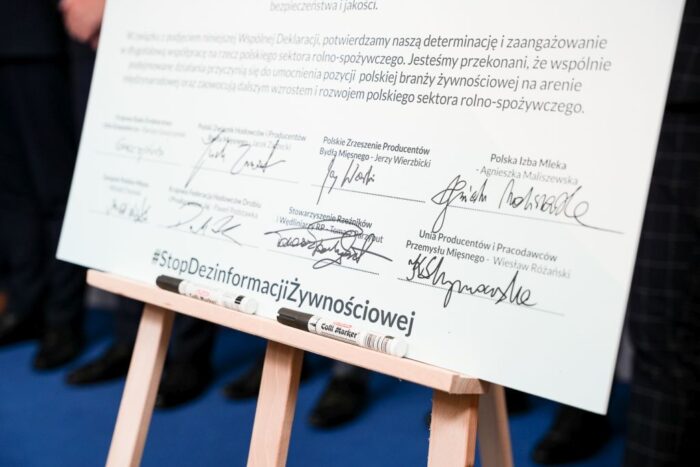 bezpieczeństwa i jakości.
W związku z podjęciem niniejszej Wspólnej Deklaracji, potwierdzamy naszą determinację i zaangażowanie
w długofalową współpracę na rzecz polskiego sektora rolno-spożywczego. Jesteśmy przekonani, że wspólnie
podejmowane działania przyczynią się do umocnienia pozycji polskiej branży żywnościowej na arenie
międzynarodowej oraz zaowocują dalszym wzrostem i rozwojem polskiego sektora rolno-spożywczego.
Polski Związek Hodowców i Producentów
Polskie Zrzeszenie Producentów
Bydła Mięsnego - Jerzy Wierzbicki
Polska Izba Mleka
- Agnieszka Maliszewska
Krajowa Federacja Hodowców Drobiu
Stowarzyszenie Rzeźników
i Wędliniarzy RP - Tomasz
Unia Producentów i Pracodawców
Przemysłu Mięsnego - Wiesław Różański
#StopDezinformacjiŻywnościowej
Colli Marker
Colli Marker